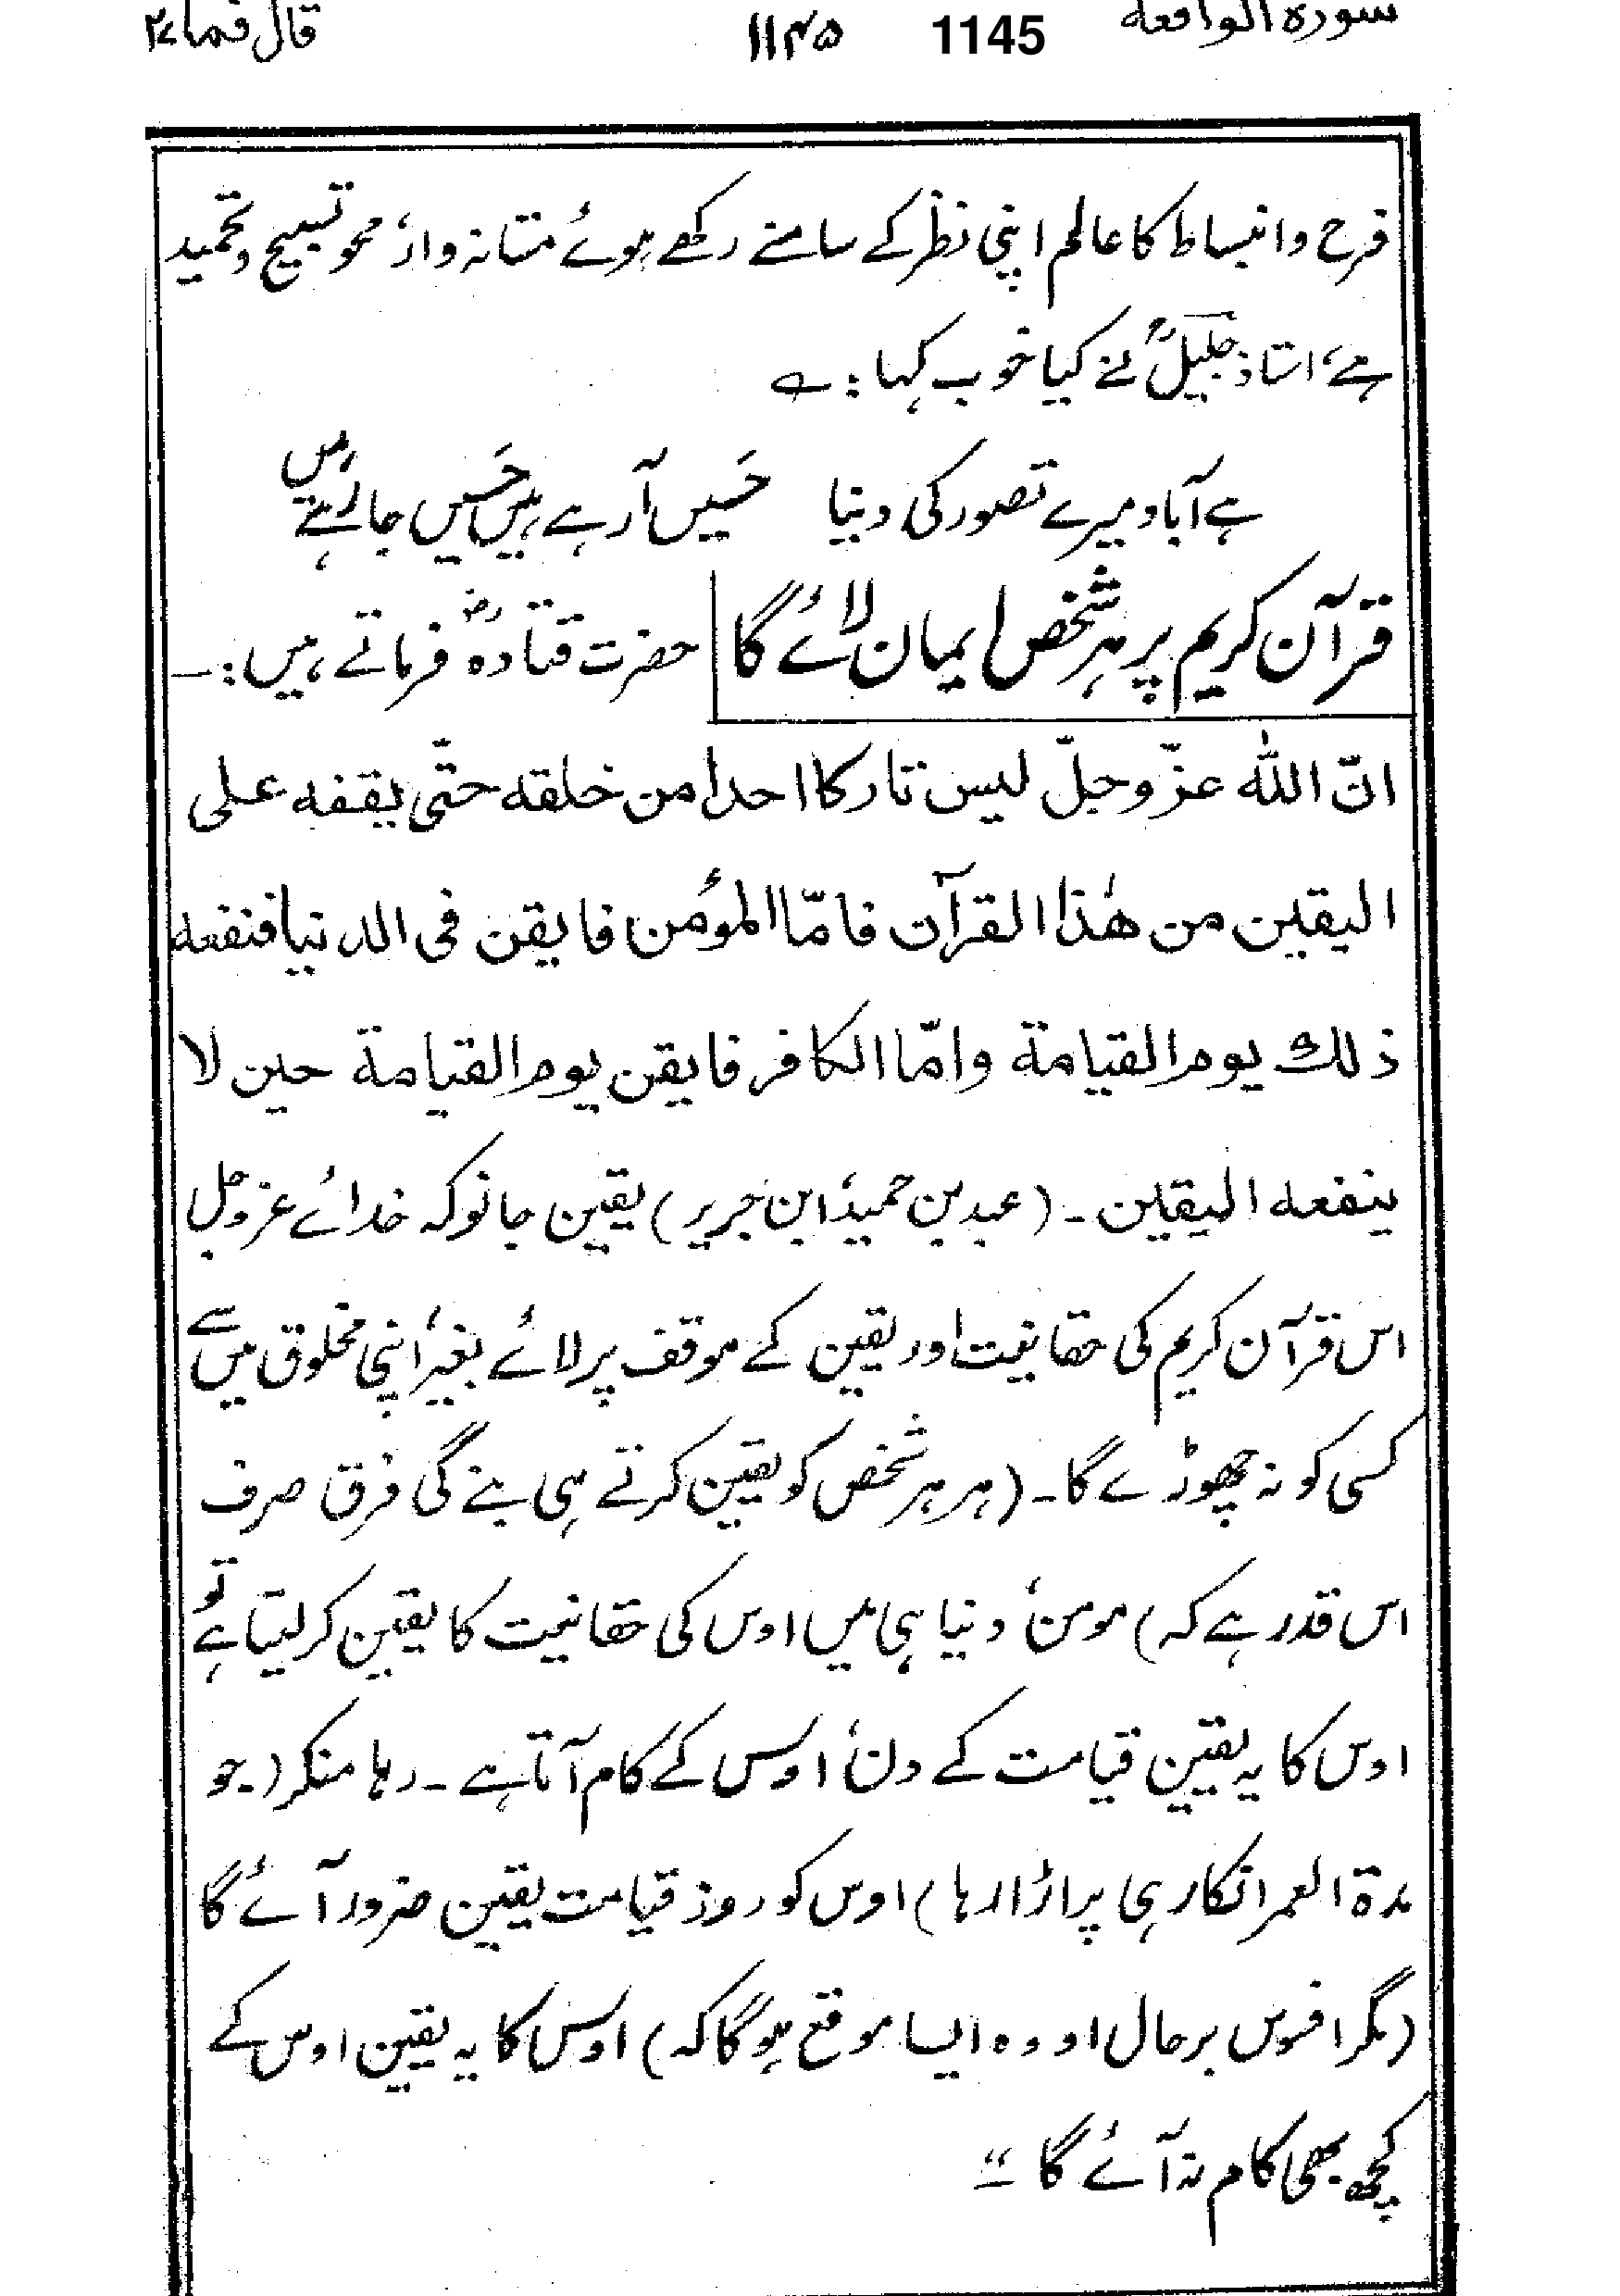 سورہ الواقعہ 1145 ۱۱۴۵ قال فما ۲۷
فرح وانبساط کا عالم اپنی نظر کے سامنے رکھے ہوئے مستانہ وار، محو تسبیح وتحمید
ہے، استاذ جلیلؒ نے کیا خوب کہا :۔
ہے آباد میرے تصور کی دنیا حَسیں آرہے ہیں حَسیں جا رہے ہیں
قرآن کریم پر ہر شخص ایمان لائے گا حضرت قتادہؓ فرماتے ہیں :۔
انّ اللّٰہ عزّ وجلّ لیس تارکا احدا من خلقہ حتّی یقفہ علی
الیقین من ھٰذا القرآن فامّا المؤمن فایقن فی الدنیا فنفعہ
ذٰلک یوم القیامة وامّا الکافر فایقن یوم القیامة حین لا
ینفعہ الیقین ۔ (عبد بن حمید، ابن جریر) یقین جانو کہ خدائے عز وجل
اس قرآن کریم کی حقانیت اور یقین کے موقف پر لائے بغیر، اپنی مخلوق میں سے
کسی کو نہ چھوڑے گا ۔ (ہر ہر شخص کو یقین کرتے ہی بنے گی فرق صرف
اس قدر ہے کہ) مومن، دنیا ہی میں اوس کی حقانیت کا یقین کرلیتا ہے تو
اوس کا یہ یقین قیامت کے دن، اوس کے کام آتا ہے ۔ رہا منکر (جو
مدة العمر انکار ہی پر اڑا رہا) اوس کو روز قیامت یقین ضرور آئے گا
(مگر افسوس برحال او وہ ایسا موقع ہوگا کہ) اوس کا یہ یقین اوس کے
کچھ بھی کام نہ آئے گا ۔"